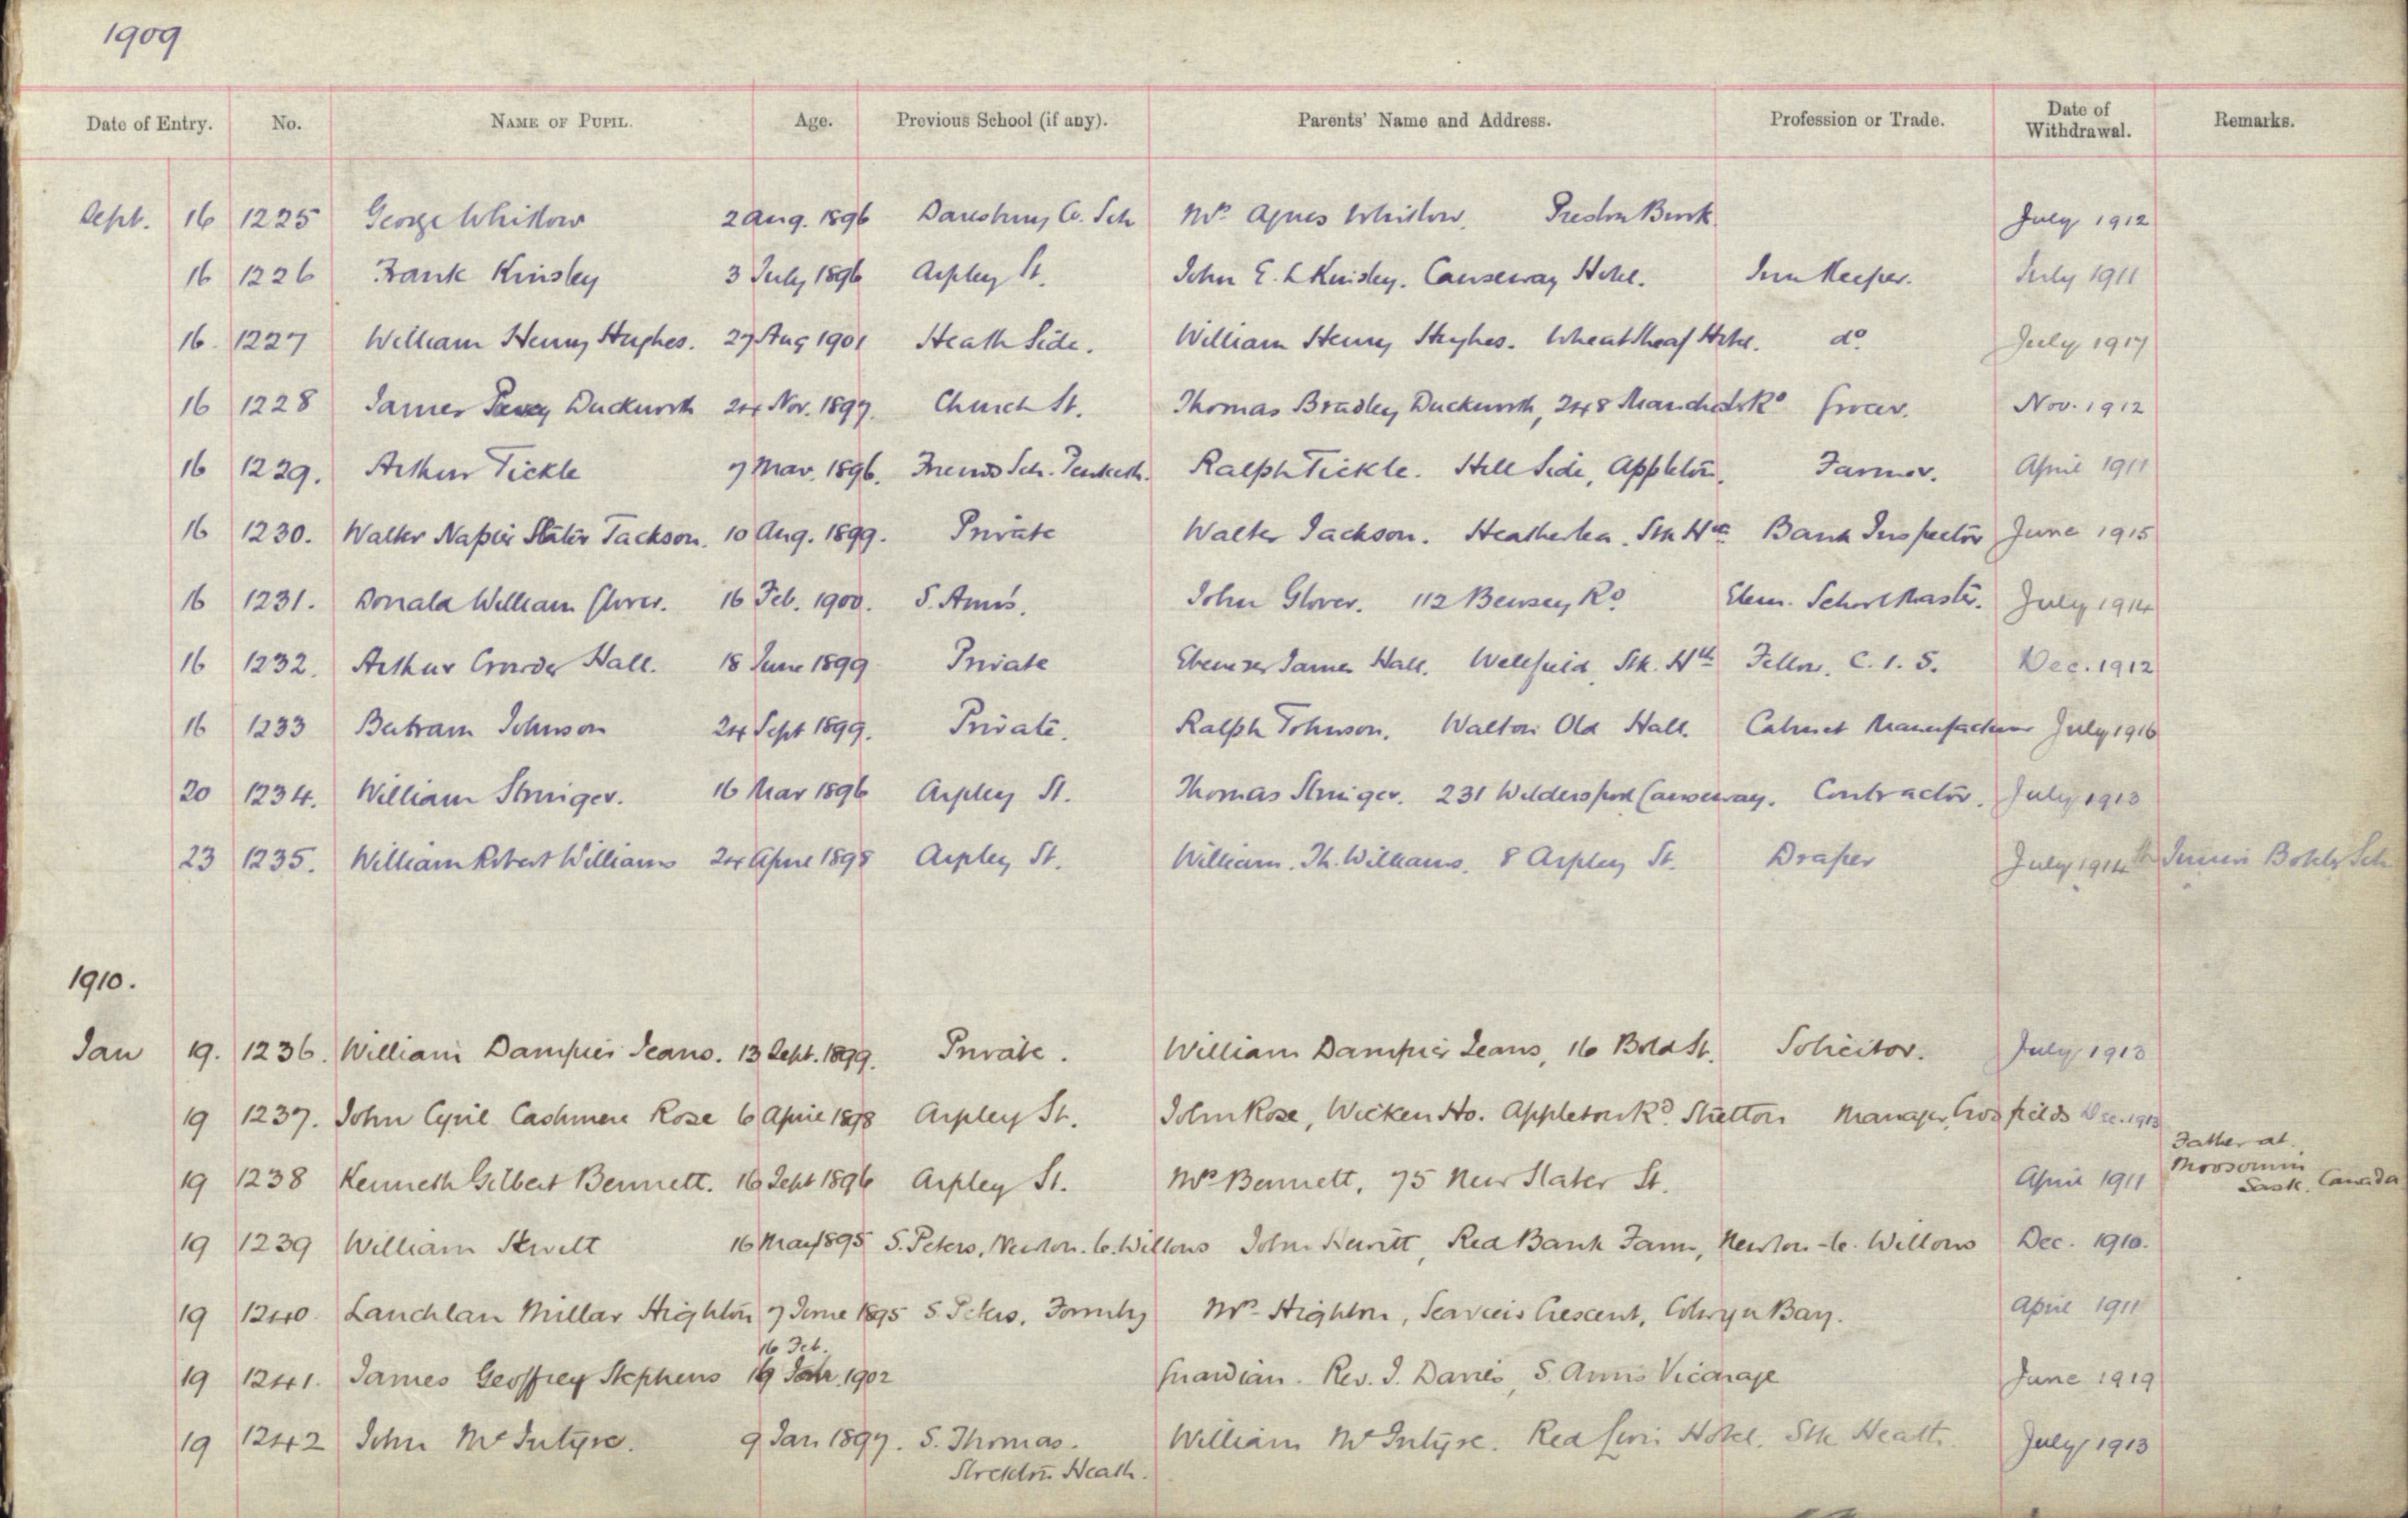 1909
Date of Entry. No. NAME OF PUPIL. Age. Previous School (if any). Parents' Name and Address. Profession or Trade. Date of Withdrawal. Remarks.
Sept. 16 1225 George Whitlow 2 Aug. 1896 Daresbury Co. Sch Mrs Agnes Whitlow, Preston Brook July 1912
16 1226 Frank Kinsley 3 July 1896 Arpley St. John E. Kinsley. Causeway Hotel. Inn Keeper. July 1911
16. 1227 William Henry Hughes. 27 Aug 1901 Heath Side. William Henry Hughes. Wheatsheaf Hotel. do July 1917
16 1228 James Duckworth 24 Nov. 1897. Church St. Thomas Bradley Duckworth, 248 Manchester Rd Grocer. Nov. 1912
16 1229. Arthur Tickle 7 Mar. 1896. Friends Sch. Penketh. Ralph Tickle. Hill Side, Appleton. Farmer. April 1911
16 1230. Walter Napier Slater Jackson. 10 Aug. 1899. Private Walter Jackson. Heatherlea. Stn Hth Bank Inspector June 1915
16 1231. Donald William Glover. 16 Feb. 1900. S. Ann's. John Glover. 112 Bewsey Rd. Elem. School Master. July 1914
16 1232. Arthur Crowder Hall. 18 June 1899 Private Ebenezer James Hall. Wellfield, Stk. Hth Fellow. C. I. S. Dec. 1912
16 1233 Bertram Johnson 24 Sept 1899. Private. Ralph Johnson. Walton Old Hall. Cabinet Manufacturer July 1916
20 1234. William Stringer. 16 Mar 1896 Arpley St. Thomas Stringer. 231 Wilderspool Causeway. Contractor. July 1913
23 1235. William Robert Williams 24 April 1898 Arpley St. William. Th. Williams. 8 Arpley St. Draper July 1914 Junior Sch
1910.
Jan 19. 1236. William Dampier Jeans. 13 Sept. 1899. Private. William Dampier Jeans, 16 Bold St. Solicitor. July 1913
19 1237. John Cyril Cashmere Rose 6 April 1898 Arpley St. John Rose, Wicken Ho. Appleton Rd. Stretton Manager, Crosfields Dec. 1913
19 1238 Kenneth Gilbert Bennett. 16 Sept 1896 Arpley St. Mrs Bennett, 75 New Slater St. April 1911 Father at Moosomin Sask. Canada
19 1239 William Hewitt 16 May 1895 S. Peters, Newton. le. Willows John Hewitt, Red Bank Farm, Newton-le-Willows Dec. 1910.
19 1240. Lauchlan Millar Highton 7 June 1895 S. Peters, Formby Mrs Highton, Crescent, Colwyn Bay. April 1911
16 Feb.
19 1241. James Geoffrey Stephens 19 1902 Guardian. Rev. J. Davies, S. Ann's Vicarage June 1919
19 1242 John McIntyre. 9 Jan 1897. S. Thomas. William McIntyre. Red Lion Hotel. Stk Heath. July 1913
Stockton Heath.